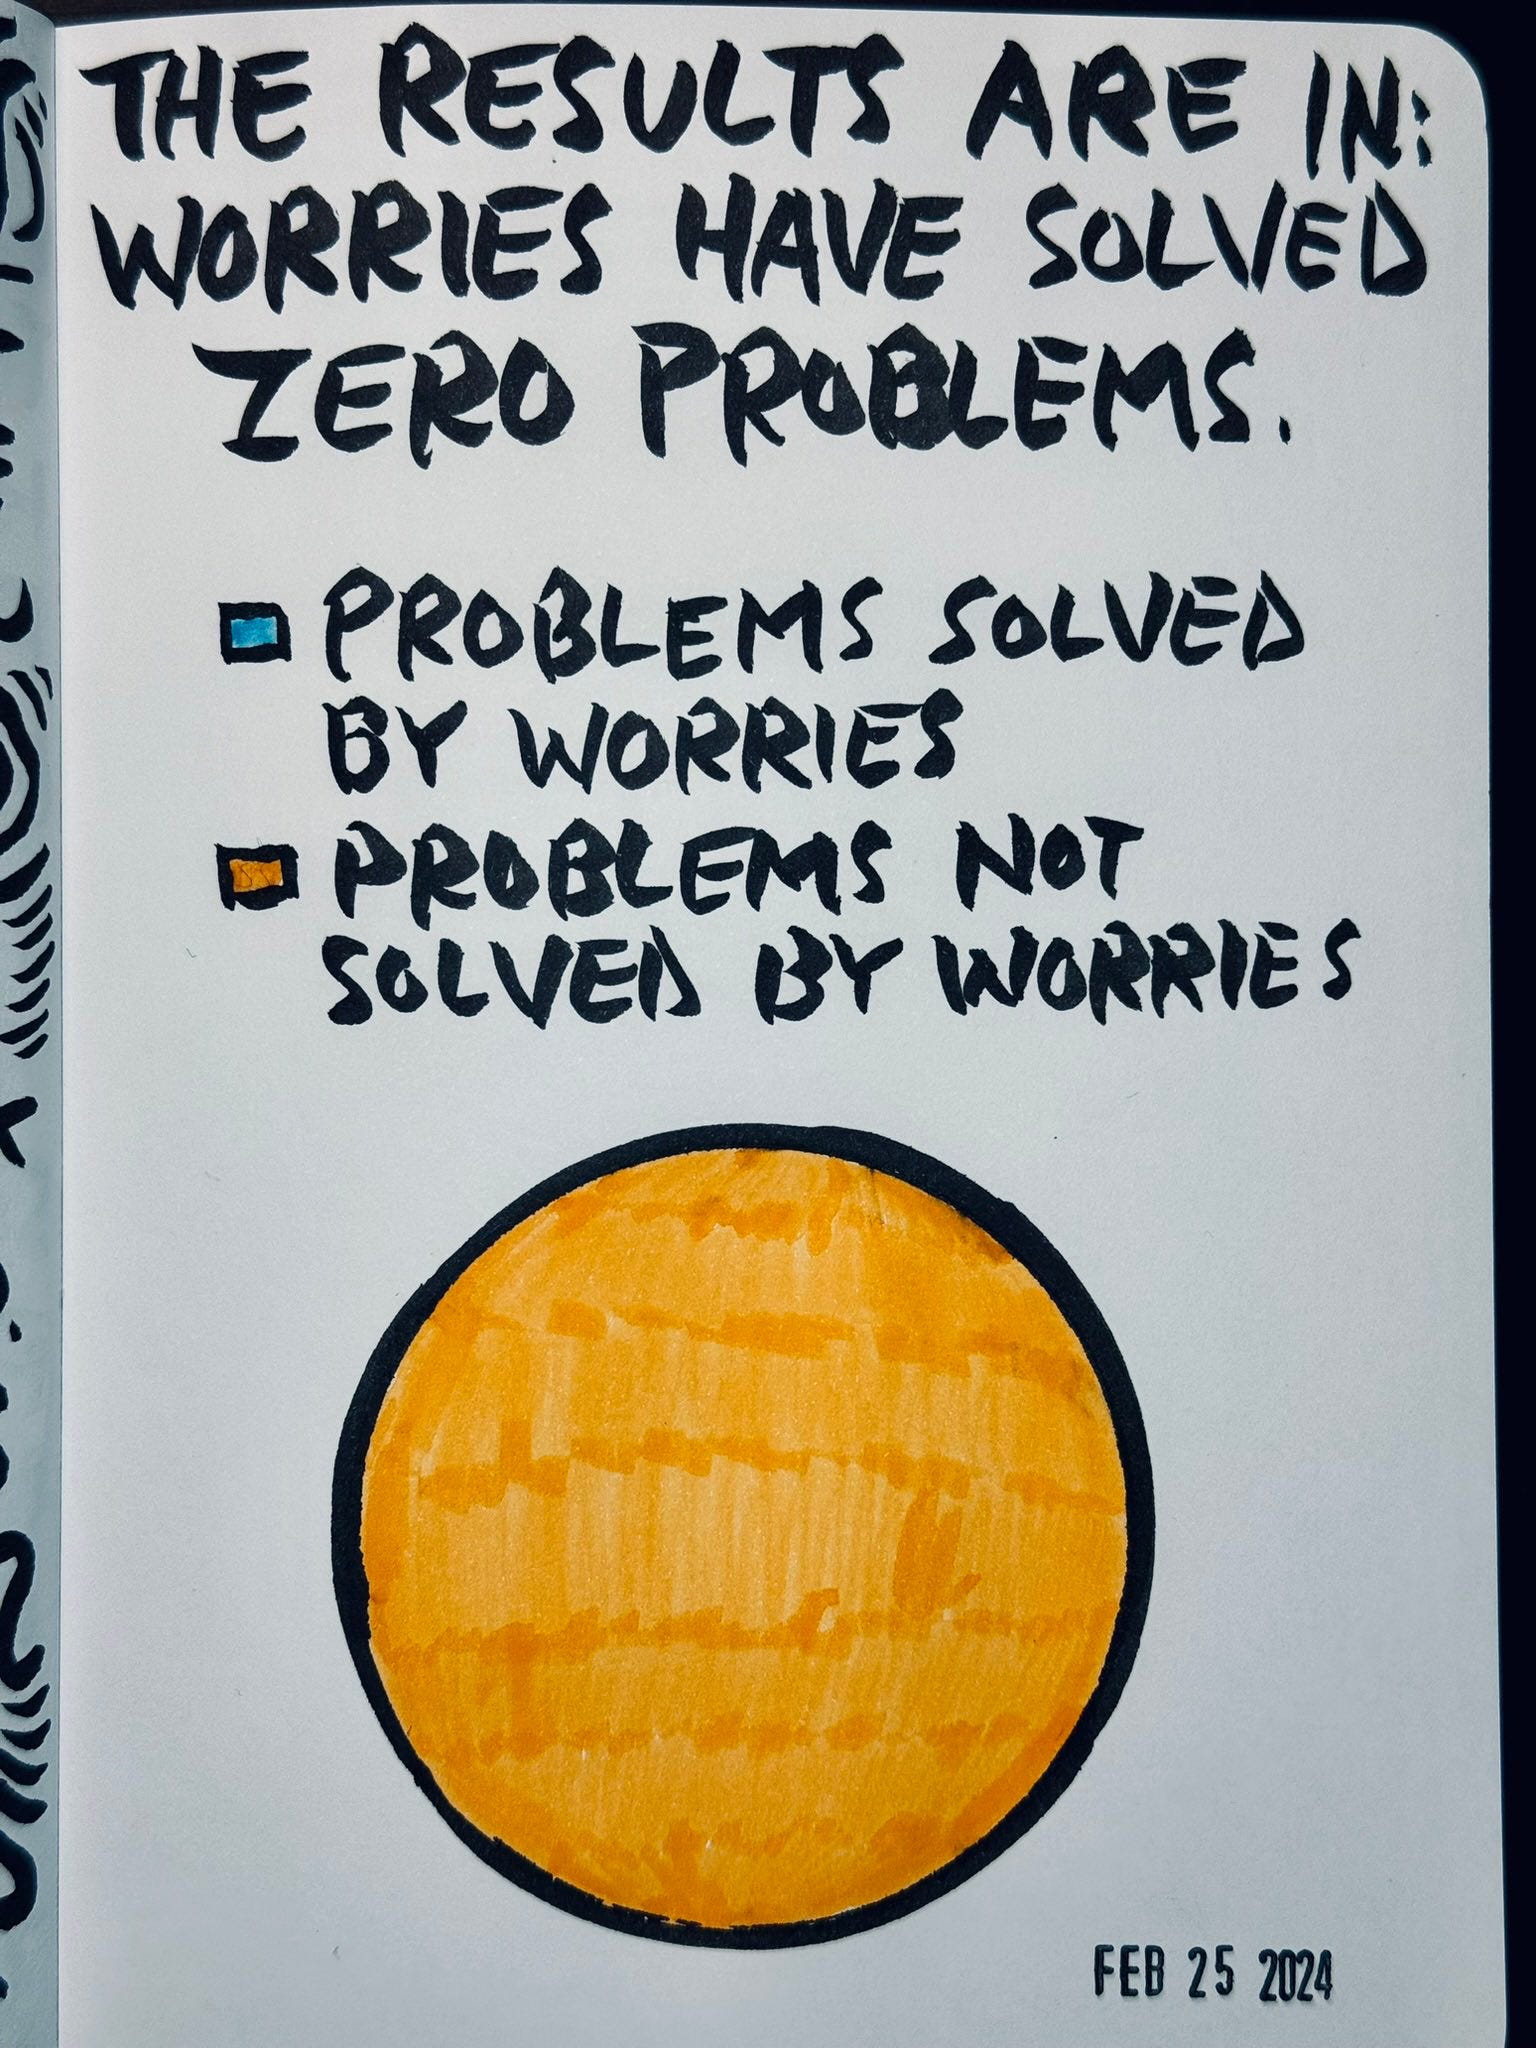 THE RESULTS ARE IN:
WORRIES HAVE SOLVED
ZERO PROBLEMS.
PROBLEMS SOLVED
BY WORRIES
PROBLEMS NOT
SOLVED BY WORRIES
FEB 25 2024